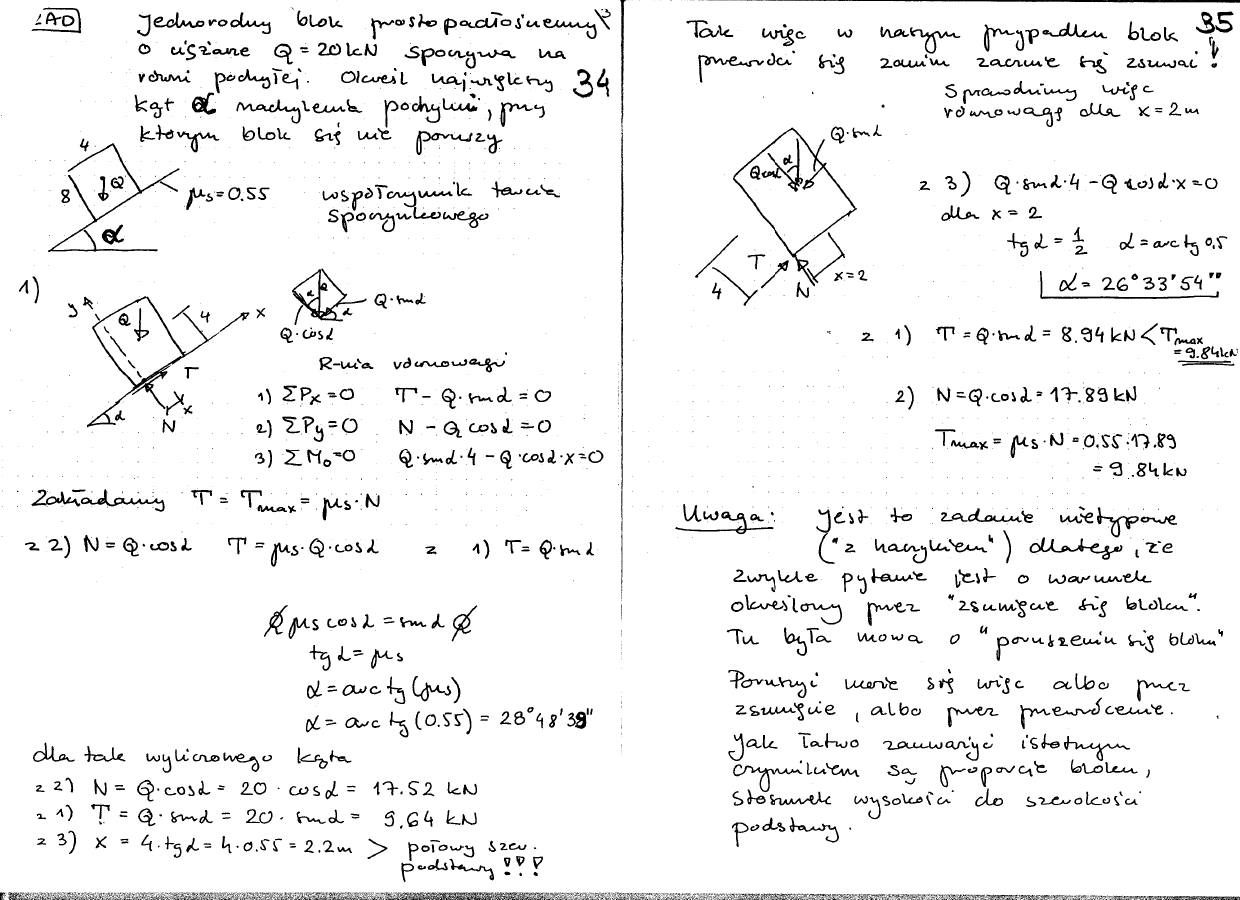 ZAD
Jednorodny blok prostopadłościenny
o ciężarze Q = 20 kN spoczywa na
równi pochyłej. Określ największy
34
kąt α nachylenia pochylni, przy
którym blok się nie poruszy
4
8
Q
α
μs = 0.55
współczynnik tarcia
spoczynkowego
1)
y
x
Q
4
T
α
N
x
α
Q
α
Q·sinα
Q·cosα
R-nia równowagi
1) ΣPx = 0 T - Q·sinα = 0
2) ΣPy = 0 N - Q cosα = 0
3) ΣMo = 0 Q·sinα·4 - Q·cosα·x = 0
Zakładamy T = Tmax = μs·N
z 2) N = Q·cosα T = μs·Q·cosα z 1) T = Q·sinα
Q μs cosα = sinα Q
tgα = μs
α = arctg (μs)
α = arctg (0.55) = 28°48'39"
dla tak wyliczonego kąta
z 2) N = Q·cosα = 20 · cosα = 17.52 kN
z 1) T = Q·sinα = 20 · sinα = 9,64 kN
z 3) x = 4·tgα = 4·0.55 = 2.2m > połowy szer.
podstawy !!!
35
Tak więc w naszym przypadku blok
przewróci się zanim zacznie się zsuwać!
Sprawdzimy więc
równowagę dla x = 2m
Q·sinα
Q cosα
α
T
N
x = 2
4
z 3) Q·sinα·4 - Q cosα·x = 0
dla x = 2
tgα = 1/2 α = arctg 0,5
α = 26°33'54"
z 1) T = Q·sinα = 8.94 kN < Tmax
= 9.84 kN
2) N = Q·cosα = 17.89 kN
Tmax = μs·N = 0.55·17.89
= 9.84 kN
Uwaga: Jest to zadanie nietypowe
("z haczykiem") dlatego, że
zwykle pytanie jest o warunek
określony przez "zsunięcie się bloku".
Tu była mowa o "poruszeniu się bloku"
Poruszyć może się więc albo przez
zsunięcie, albo przez przewrócenie.
Jak łatwo zauważyć istotnym
czynnikiem są proporcje bloku,
stosunek wysokości do szerokości
podstawy.